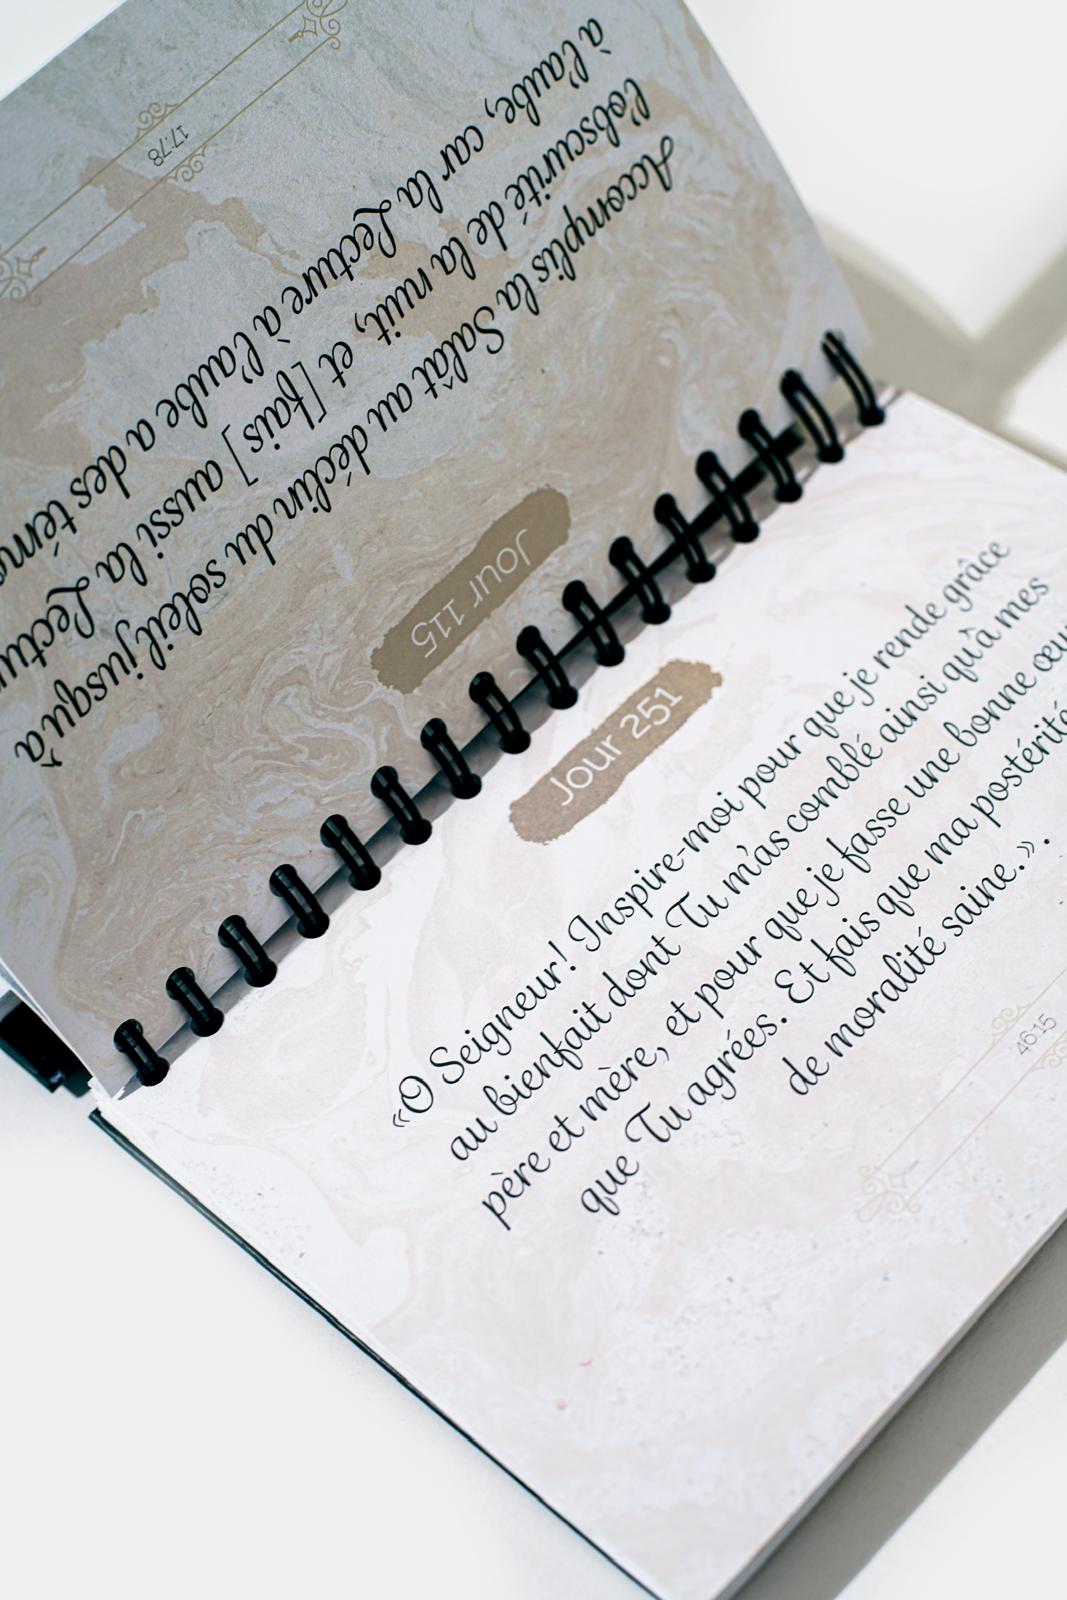 Jour 251
«O Seigneur! Inspire-moi pour que je rende grâce
au bienfait dont Tu m'as comblé ainsi qu'à mes
père et mère, et pour que je fasse une bonne
que Tu agrées. Et fais que ma postérité
de moralité saine.».
46:15
Jour 115
Accomplis la Salât au déclin du soleil jusqu'à
l'obscurité de la nuit, et [fais] aussi la
à l'aube, car la Lecture à l'aube a des
17:78